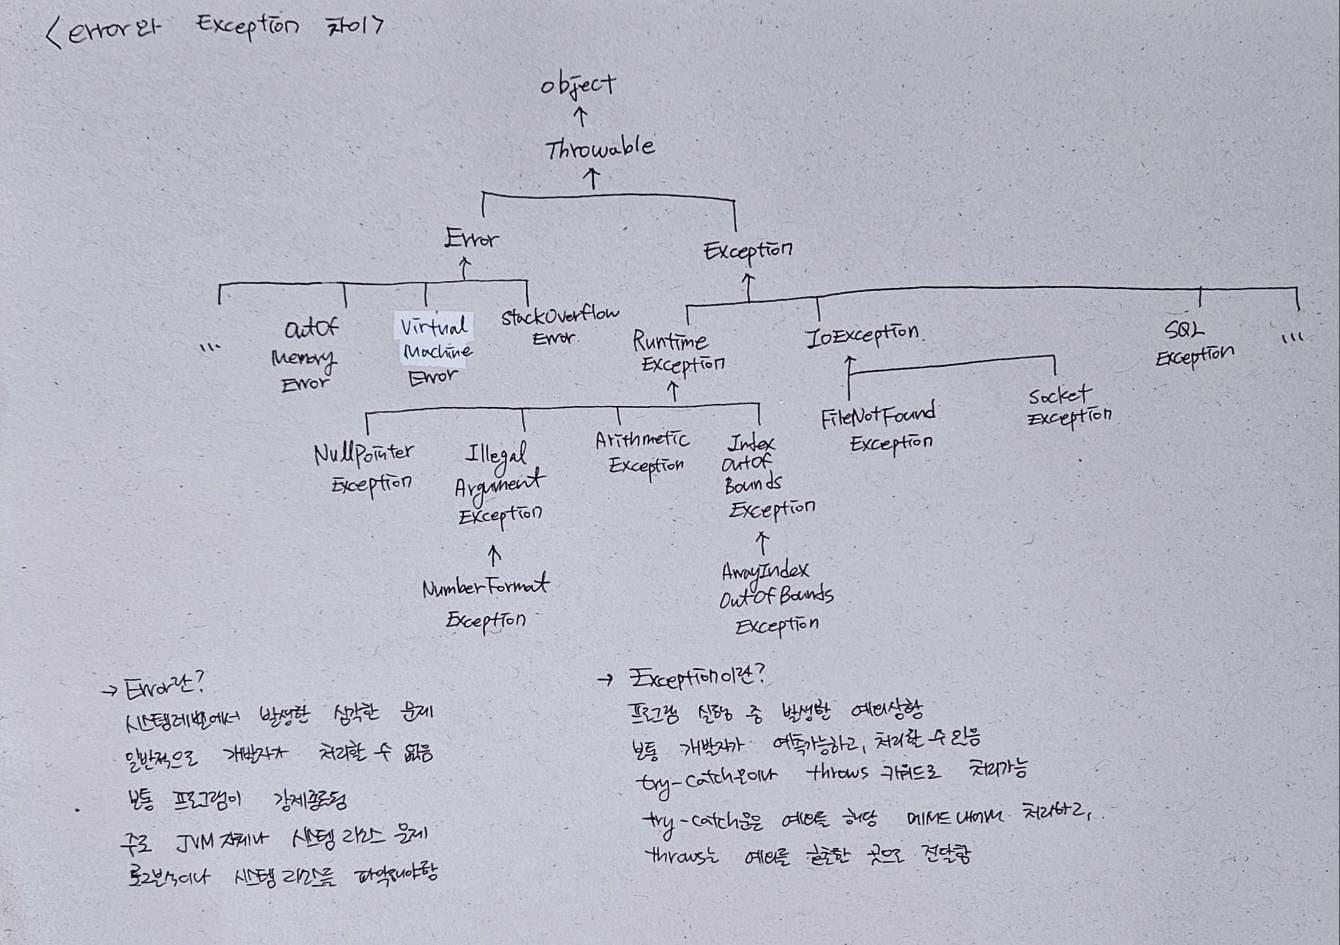 <error와 Exception 차이>
object
Throwable
Error
Exception
...
OutOf
Memory
Error
Virtual
Machine
Error
StackOverflow
Error
Runtime
Exception
IoException
SQL
Exception
...
NullPointer
Exception
Illegal
Argument
Exception
Arithmetic
Exception
Index
OutOf
Bounds
Exception
FileNotFound
Exception
Socket
Exception
NumberFormat
Exception
ArrayIndex
OutOfBounds
Exception
→ Error란?
시스템레벨에서 발생한 심각한 문제
일반적으로 개발자가 처리할 수 없음
보통 프로그램이 강제종료됨
주로 JVM 자체나 시스템 리소스 문제
로그분석이나 시스템 리소스를 파악해야함
→ Exception이란?
프로그램 실행 중 발생한 예외상황
보통 개발자가 예측가능하고, 처리할 수 있음
try-catch문이나 throws 키워드로 처리가능
try-catch문은 예외를 해당 메서드 내에서 처리하고,
throws는 예외를 호출한 곳으로 전달함